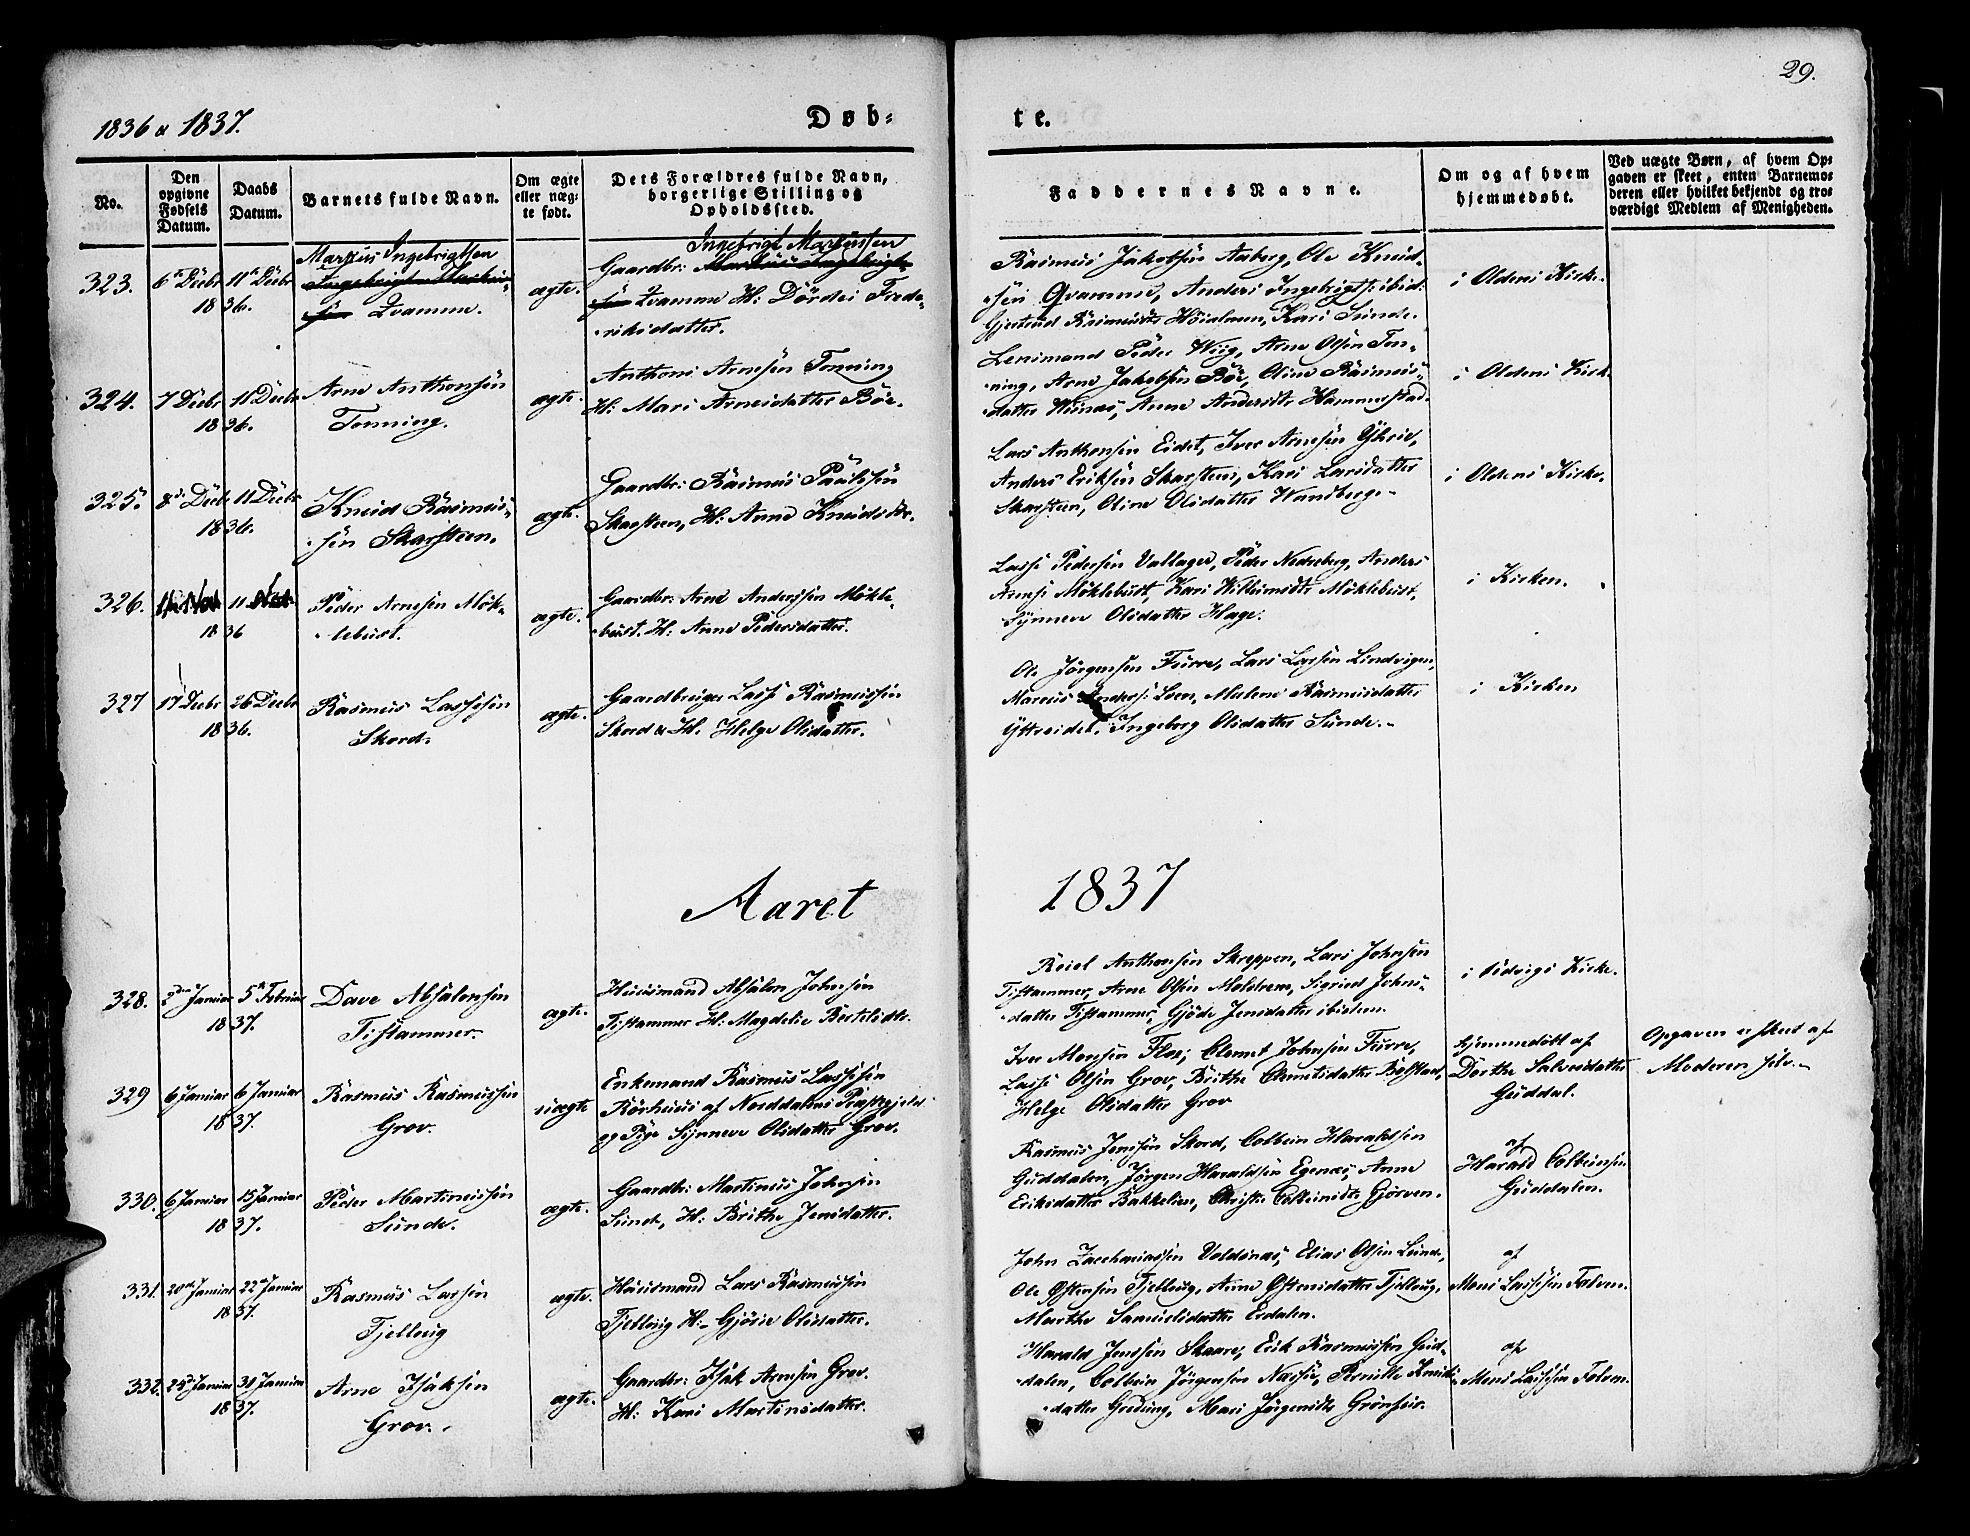 29.
1836 & 1837.
Døb=
te.
No.
Den opgivne Fødsels Datum.
Daabs Datum.
Barnets fulde Navn.
Om ægte eller uægte født.
Dets Forældres fulde Navn, borgerlige Stilling og Opholdssted.
Faddernes Navne.
Om og af hvem hjemmedøbt.
Ved uægte Børn, af hvem Op=
gaven er skeet, enten Barnemo=
deren eller hvilket bekjendt og tro=
værdigt Medlem af Menigheden.
323.
6te Decbr 11te Decbr
1836.
Markus Ingebrigtsen
Qvamme.
ægte.
Ingebrigt Markussen
Gaardbr:
Qvamme H: Dørdei Frede-
riksdatter.
Rasmus Jakobsen Aaberg, Ole Knud-
sen Qvamme, Anders Ingebrigts: ibid:
Gjertrud Rasmusdtr Høialmen, Kari Sunde.
i Oldens Kirke.
324.
7 Decbr 11 Decbr
1836.
Arne Anthonsen
Tonning.
ægte.
Anthoni Arnesen Tonning
H: Mari Arnesdatter Bøe.
Lensmand Peder Wiig, Arne Olsen Ton-
ning, Arne Jakobsen Bøe, Oline Rasmus-
datter Munes, Anne Andersdtr Hammerstad.
i Oldens Kirk.
325.
8de Decbr 11 Decbr
1836.
Knud Rasmus-
sen Skarsteen.
ægte.
Gaardbr: Rasmus Paulsen
Skarsteen, H: Anne Knudsdtr.
Lars Anthonsen Eidet, Iver Arnesen Yhrie,
Anders Eriksen Skarsteen, Kari Larsdatter
Skarsteen, Oline Olsdatter Wandberge.
i Oldens Kirke.
326.
11
1836
Peder Arnesen Møk-
lebust.
ægte.
Gaardbr: Arne Anderssen Møkle-
bust. H: Anne Pedersdatter.
Lasse Pedersen Vallager, Peder Nedreberg, Anders
Arnes: Møklebust, Kari Willumsdtr Møklebust,
Synneve Olsdatter Hage.
i Kirken.
327
17 Decbr 26 Decbr
1836.
Rasmus Lassesen
Skord.
ægte.
Gaardbruger Lasse Rasmussen
Skord & H: Helge Olsdatter.
Ole Jørgensen Furre, Lars Larsen Lindvigen,
Marcus Anders: Loen, Malene Rasmusdatter
Yttreidet, Ingeborg Olsdatter Sunde.
i Kirken
Aaret
1837
328.
2den Januar 5te Februar
1837.
Dave Absalonsen
Tistammer.
ægte.
Huusmand Absalon Johnsen
Tistammer H: Magdelie Bertelsdtr.
Reiel Anthonsen Skreppen, Lars Johnsen
Tistammer, Arne Olsen Meldrem, Sigrid Johns-
datter Tistammer, Gjøde Jensdatter ibidem.
i Udvigs Kirke.
329
6 Januar 6 Januar
1837.
Rasmus Rasmussen
Grov.
uægte
Enkemand Rasmus Lassesen
Rørhuus af Norddalens Præstegjeld
og Pige Synneve Olsdatter Grov.
Iver Monsen Floe, Clemet Johnsen Furre,
Lasse Olsen Grov, Brithe Clemetsdatter Bølstad,
Helge Olsdatter Grov
hjemmedøbt af
Dorthe Salvesdatter
Guddal.
Opgaven er skeet af
Moderen selv.
330.
6 Januar 15 Januar
1837.
Peder Martinussen
Sunde.
ægte.
Gaardbr: Martinus Johnsen
Sunde, H: Brithe Jensdatter.
Rasmus Jensen Skord, Colbein Haraldsen
Guddalen, Jørgen Haraldsen Egenes, Anne
Eriksdatter Bakkelien, Christi Colbeinsdtr Gjørven.
af
Harald Colbeinsen
Guddalen.
331.
20de Januar 22de Januar
1837.
Rasmus Larsen
Tjellaug
ægte.
Huusmand Lars Rasmussen
Tjellaug H: Gjørie Olsdatter.
John Zacchariassen Valdsnes, Elias Olsen Lunde,
Ole Østensen Tjellaug, Anne Østensdatter Tjellaug,
Marthe Samuelsdatter Erdalen.
af
Mons Lassesen Folven.
332.
25de Januar 31 Januar
1837.
Arne Isaksen
Grov.
ægte.
Gaardbr: Isak Arnesen Grov.
H: Kari Martinsdatter.
Harald Jenssen Skaare, Erik Rasmussen Gud-
dalen, Colbein Jørgensen Næsse, Pernille Knuds-
datter Greding, Mari Jørgensdtr Grønfur.
af
Mons Lassesen Folven.